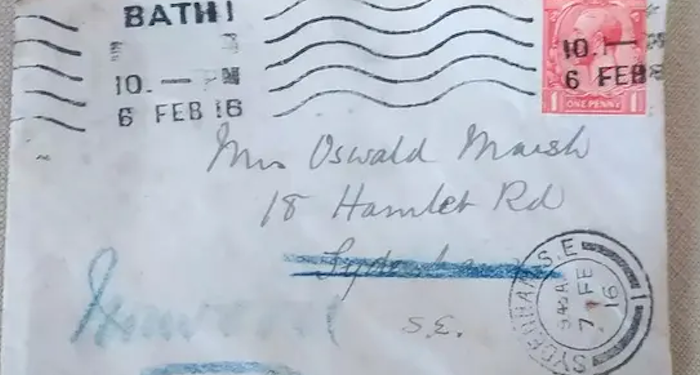 BATH
10. — PM
6 FEB 16
10.1—
6 FEB
ONE PENNY
Mrs Oswald Marsh
18 Hamlet Rd
Sydenham
S.E.
SYDENHAM S.E
9 45 AM
7 FE
16